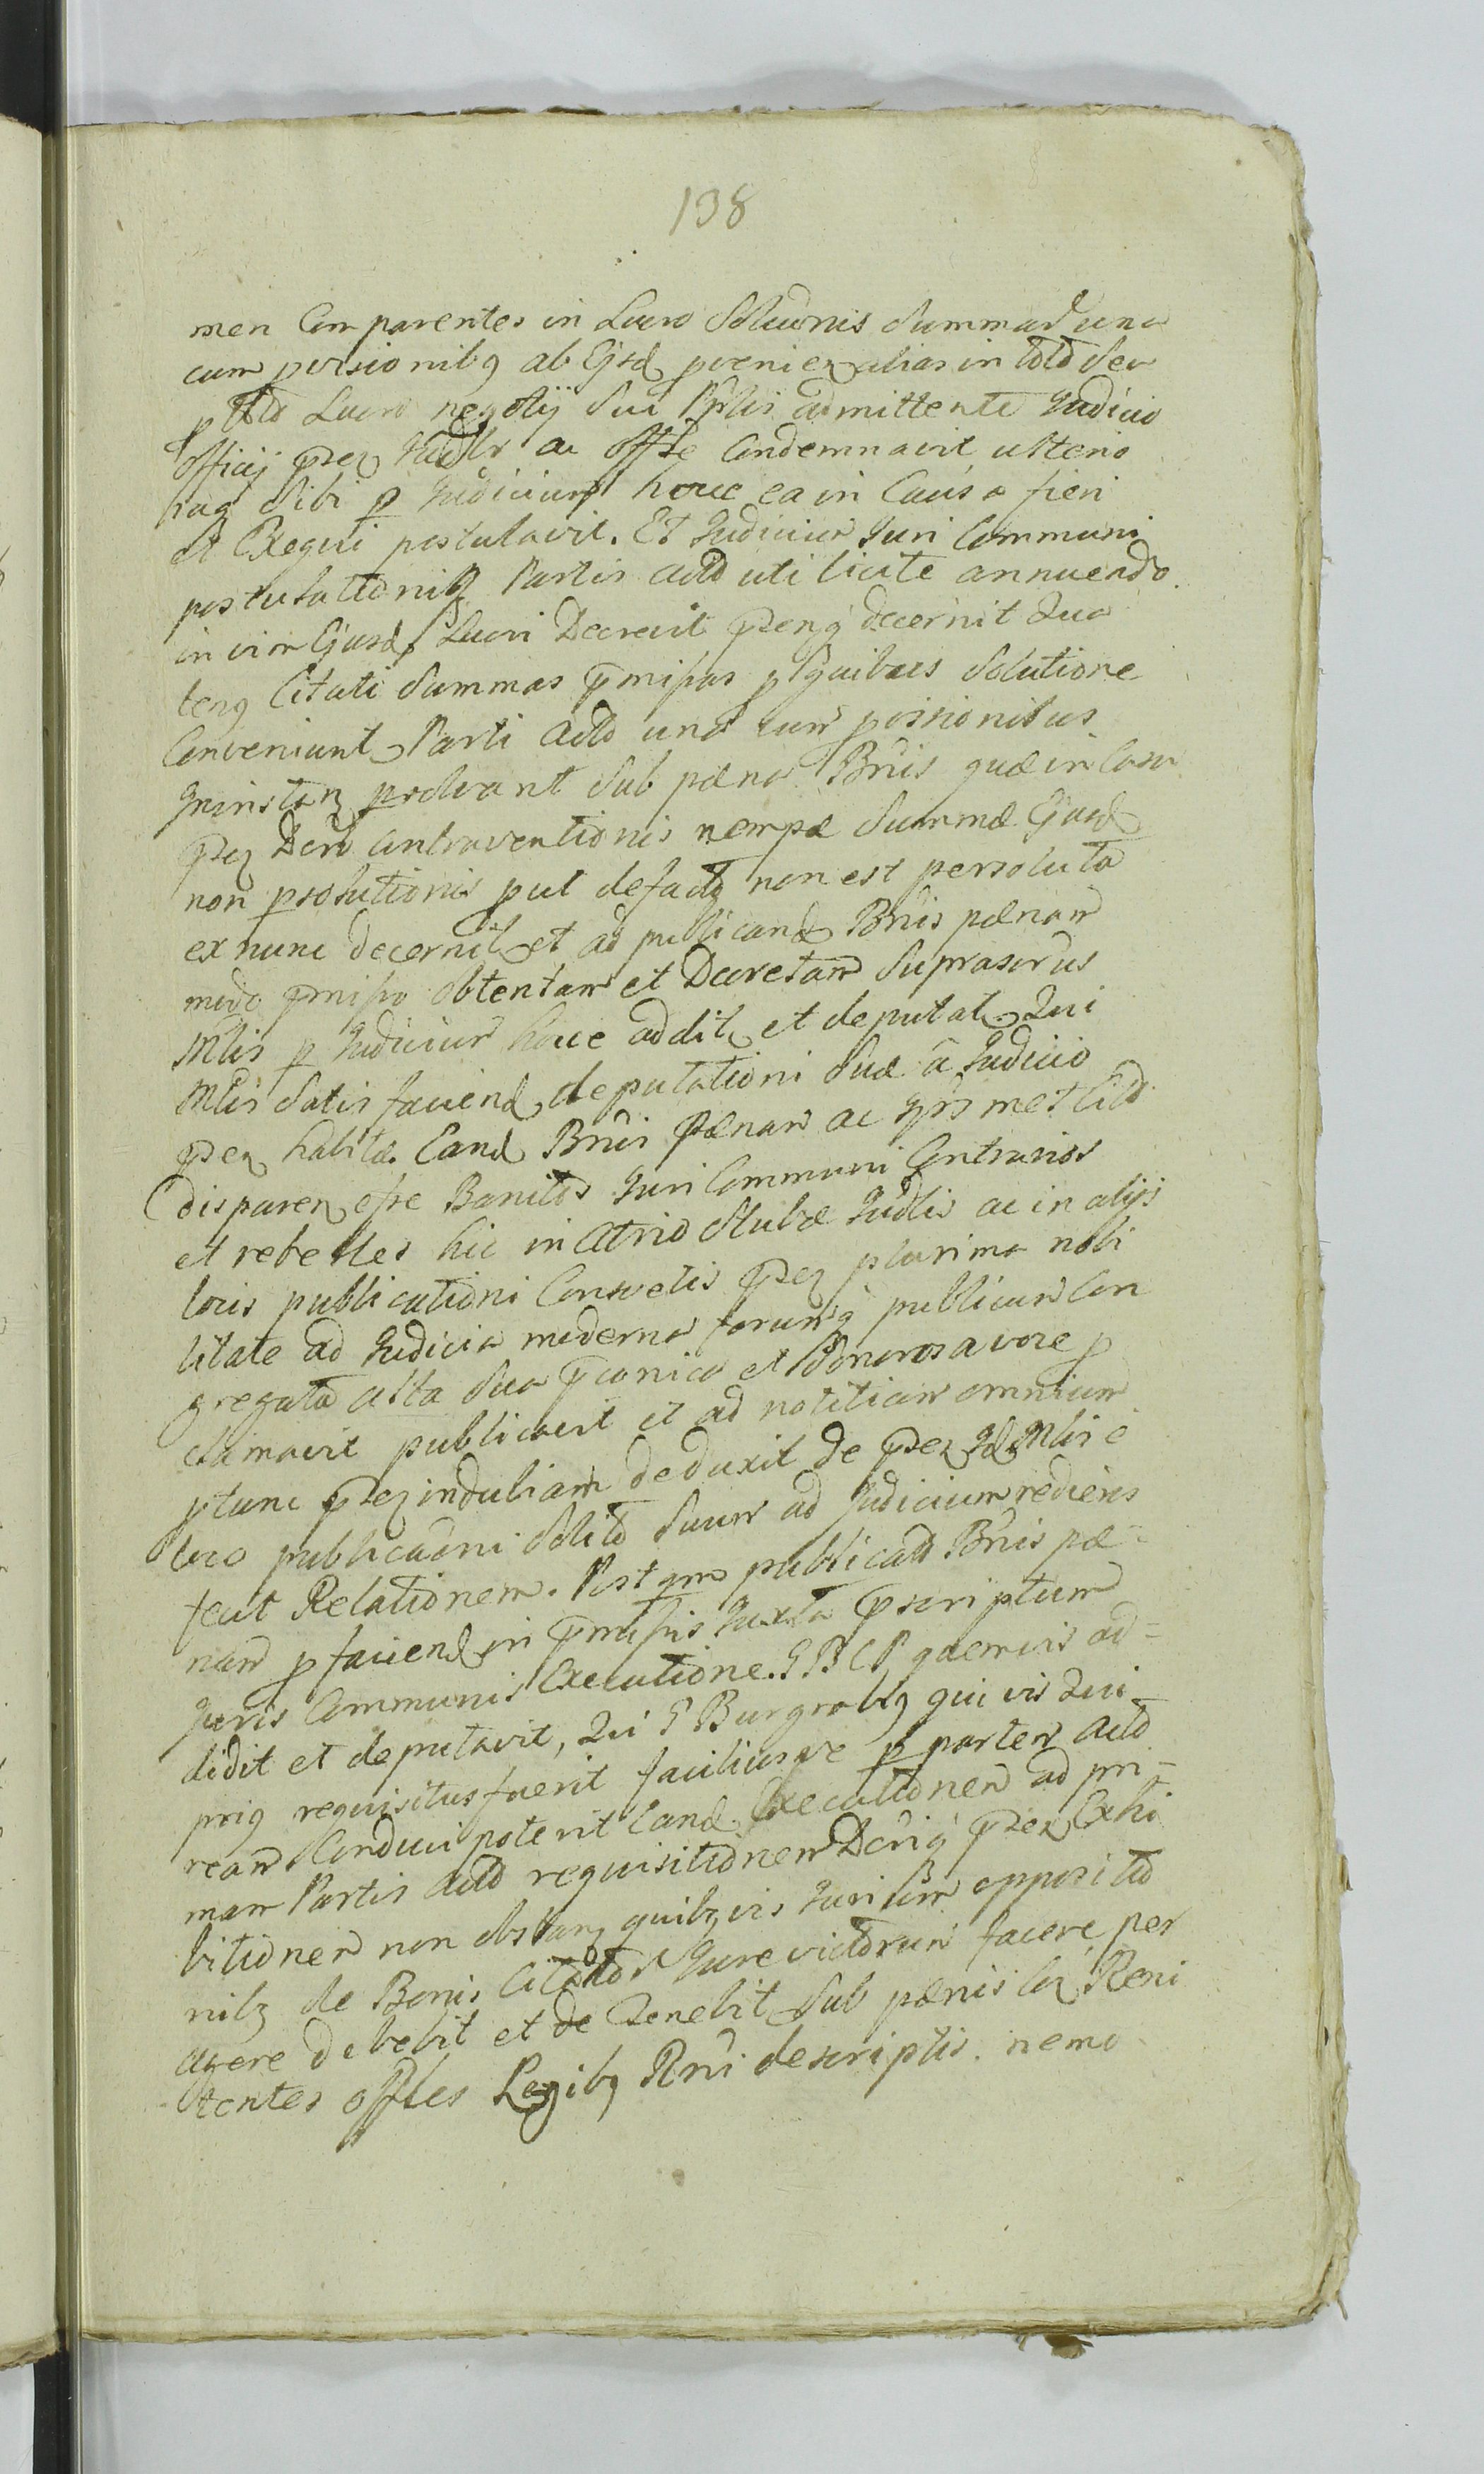 138
men Comparentes in Lucro Solucnis Summar una
cum provisionibq ab Ejsd provenien alias in toto Seu
p tto Lucro negotij sui Pplis admittente Judicio
Officij pseq Judlr ac Offse Condemnavit ulterio
raq Sibi p Judicium hocce ea in Causa fieri
et Exequi postulavit. Et Judicium Juri Communi
postulationiq Partis acto uti licite annuendo
in vim Ejusd Lucri Decrevit psenq decernit Qua
tenq Citati Summas pmissas p quibus Solutione
Conveniunt Parti acto una cum provisionibus
Ininstan psolvant Sub pæna Bnis quæ in Casu
pseq Dcrti Contraventionis nempe Summæ Ejusd
non psolutionis put defacto non est persoluta
ex nunc decernit et ad publicand Bnis pænam
modo pmisso obtentam et Decretam Suprascrtus
Mlis p Judicium hocce addit et deputat. Qui
Mlis Satis faciend deputationi Suæ a Judicio
pseq habitæ Eand Bnis Pænam ac Ipsmet Citt
disparen esse Banitos Juri Communi Contrarios
et rebelles hic in Atrio Stubæ Judlis ac in alijs
locis publicationi Consvetis pseq plurima nobi
litate ad Judicia moderna forumq publicum Con
gregata alta Sua pconica et Sonorosa voce p
clamavit publicavit et ad notitiam omnium
ptunc pseq indubiam deduxit de pseq Id Mlis è
loco publicaoni Solito Suum ad Judicium rediens
fecit Relationem. Postqm publicatt Bnis pæ-
nam p faciend in pmissis Juxta pscriptum
Juris Communis Executione. G B C P quemvis ad-
didit et deputavit, Qui G Burgrabq quivis Qui
priq requisitus fuerit faciliusqe p partem acto
ream Conduci poterit Eand Executionem ad pri-
mam Partis acto requisitionem Dcriq pseq Exhi
bitionem non obstan quibqvis Jurium oppositio
nibq de Bonis Citator Jure victorum facere per
agere debebit et de Tenebit Sub pænis in Reni
tentes offles Legibq Rni descriptis. nemo